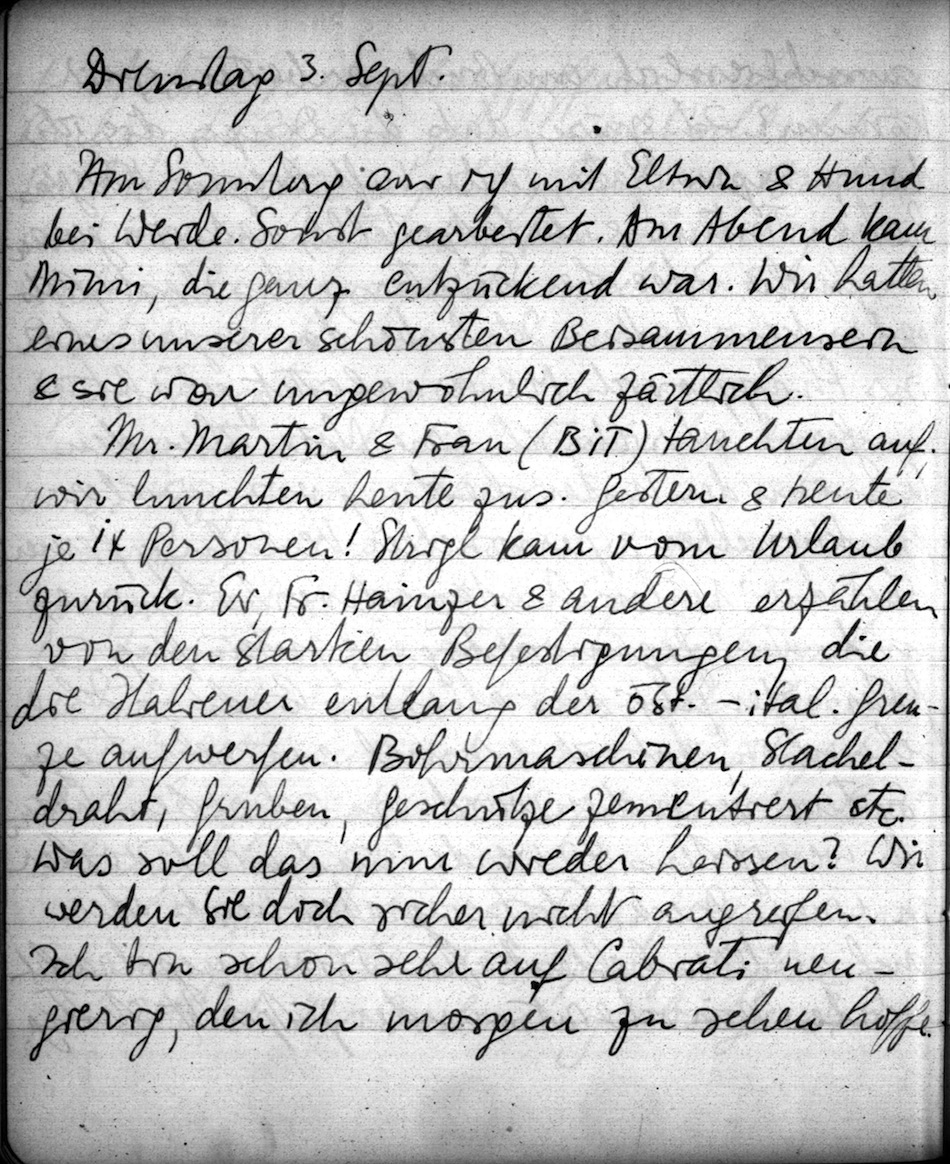 Dienstag 3. Sept.
Am Sonntag war ich mit Eltern & Hund
bei Werde. Sonst gearbeitet. Am Abend kam
Mimi, die ganz entzückend war. Wir hatten
eines unserer schönsten Beisammensein
& sie war ungewöhnlich zärtlich.
Mr. Martin & Frau (BIT) tauchten auf,
wir lunchten heute zus. Gestern & heute
je Personen! kam vom Urlaub
zurück. Er, Fr. Hainzer & andere erzählen
von den starken Befestigungen, die
die Italiener entlang der öst. - ital. Gren-
ze aufwerfen. Bohrmaschinen, Stachel-
draht, Gruben, Geschütze zementiert etc.
Was soll das nun wieder heissen? Wir
werden sie doch sicher nicht angreifen.
Ich bin schon sehr auf Cabiati neu-
gierig, den ich morgen zu sehen hoffe.